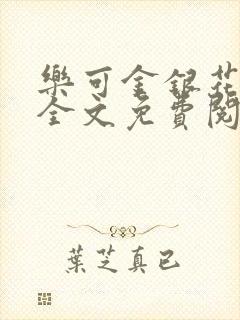 樂可金銀花
全文免費閱
葉芝真已